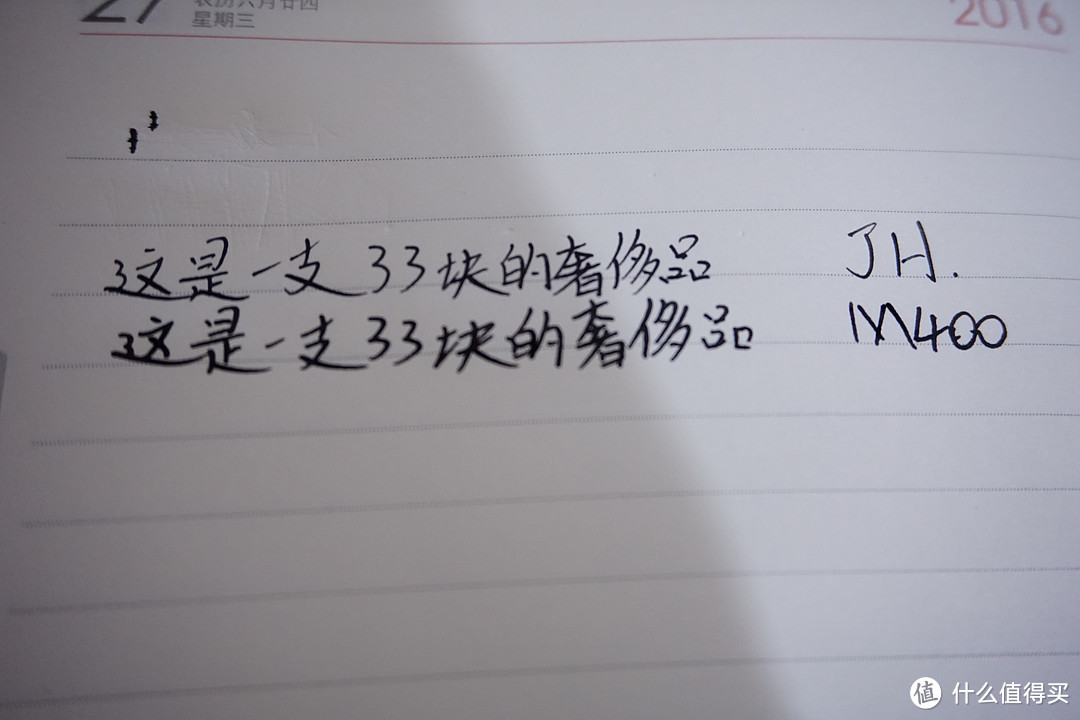 27 农历六月廿四
星期三
2016
这是一支33块的奢侈品 JH.
这是一支33块的奢侈品 M400
值 什么值得买